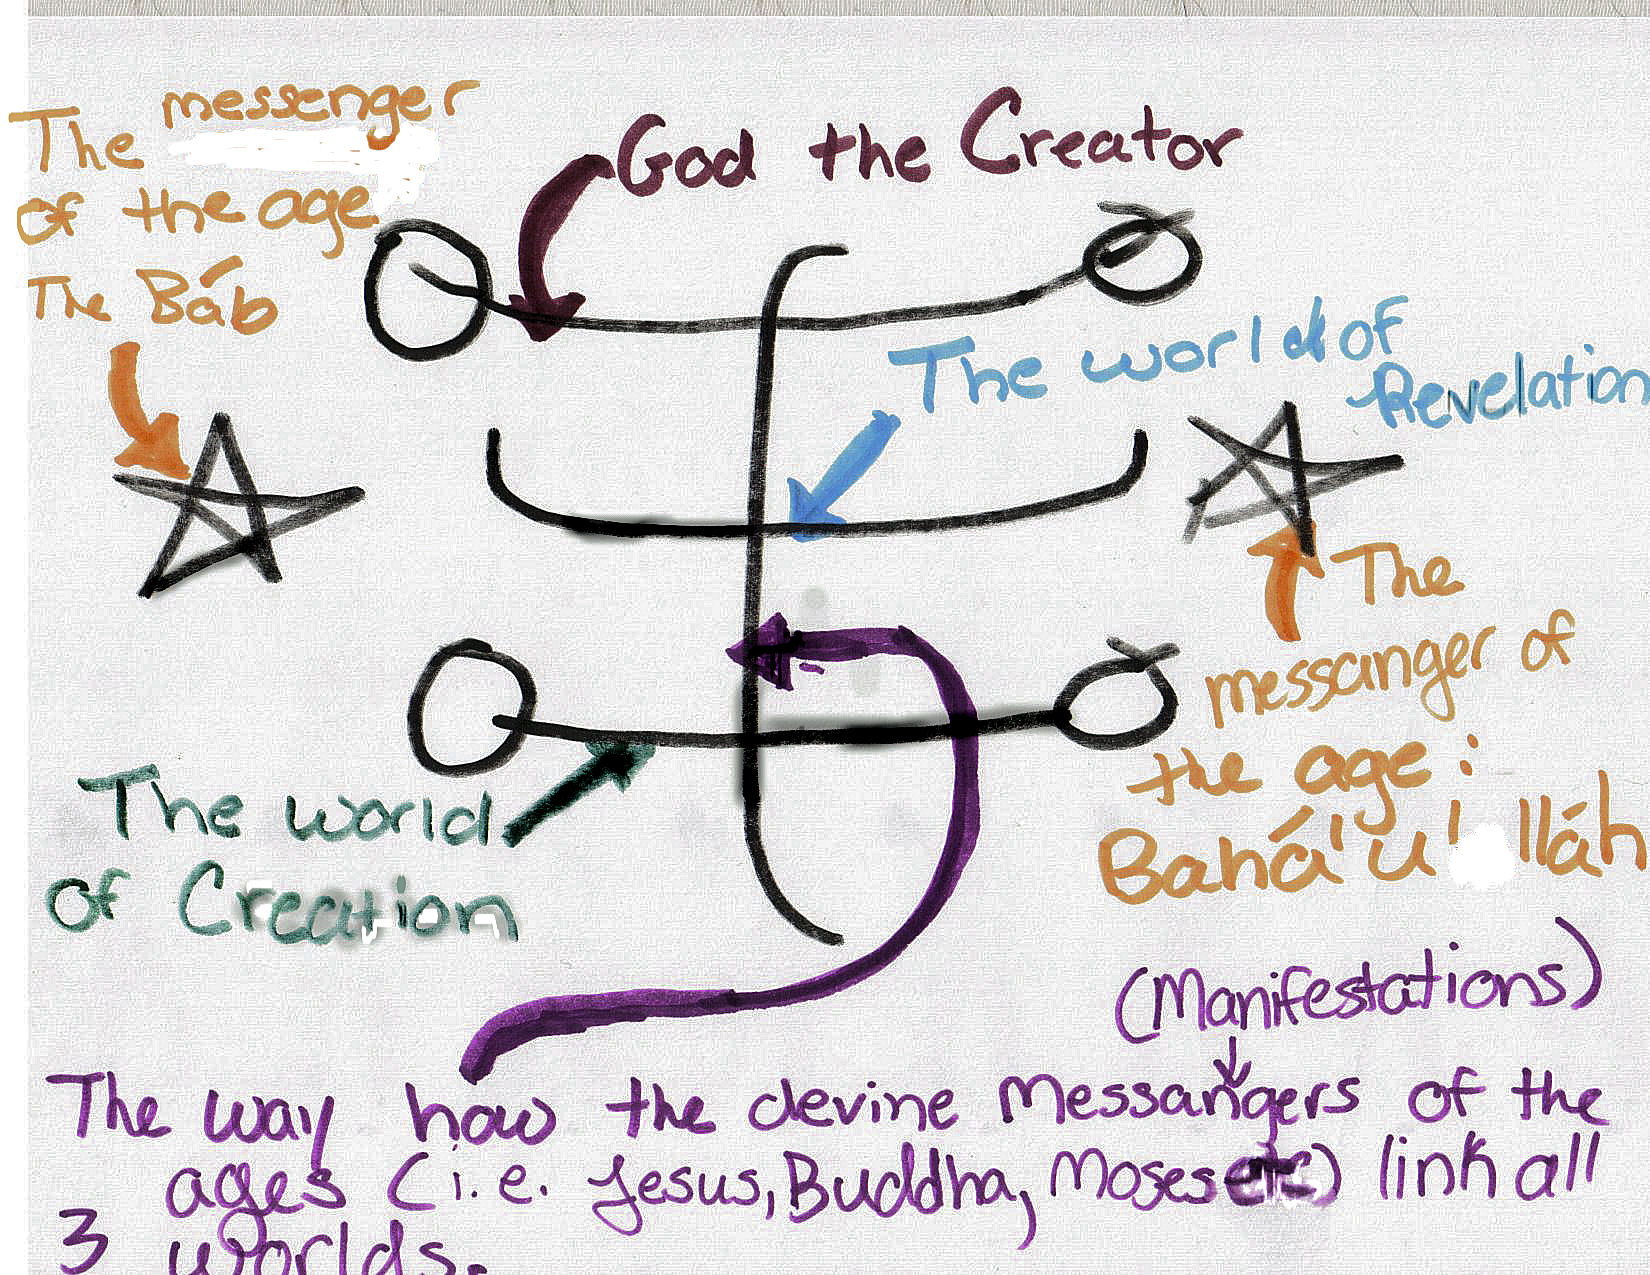 The messenger
of the age
The Báb
God the Creator
The world of
Revelation
The
messanger of
the age:
Bahá'u'lláh
The world
of Creation
(Manifestations)
The way how the devine Messangers of the
ages (i.e. Jesus, Buddha, Moses etc) link all
3 worlds.